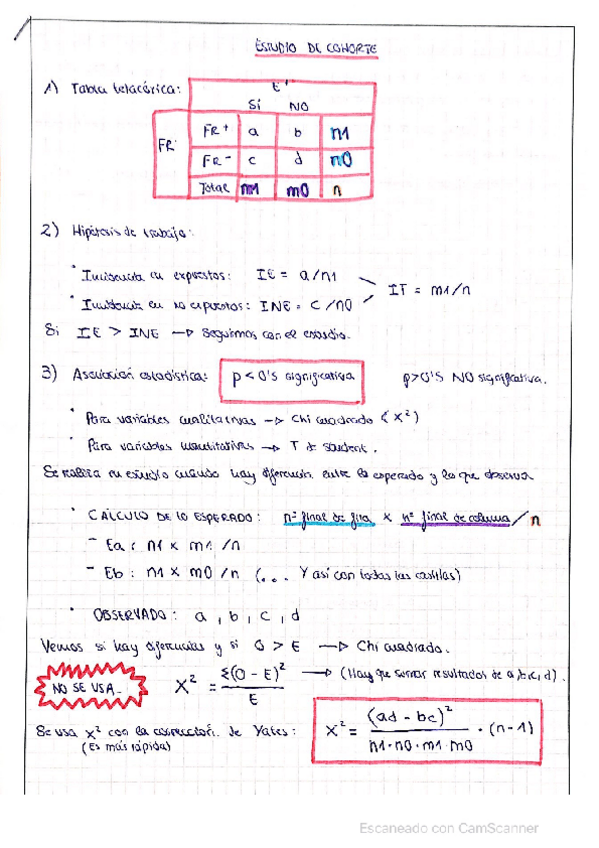 ESTUDIO DE COHORTE
1) Tabla tetracórica:
E+
SI NO
FR FR+ a b n1
FR- c d n0
Total m1 m0 n
2) Hipótesis de trabajo:
· Incidencia en expuestos: IE = a/n1
IT = m1/n
· Incidencia en no expuestos: INE = c/n0
Si IE > INE → seguimos con el estudio.
3) Asociación estadística: p < 0'5 significativa p>0'5 NO significativa.
· Para variables cualitativas → Chi cuadrado (X²)
· Para variables cuantitativas → T de student.
Se realiza en estudio cuando hay diferencia entre lo esperado y lo que observa
· CÁLCULO DE LO ESPERADO: nº final de fila x nº final de columna / n
- Ea: n1 x m1 /n
- Eb: n1 x m0 /n (... Y así con todas las casillas)
· OBSERVADO: a, b, c, d
Vemos si hay diferencias y si O > E → Chi cuadrado.
NO SE USA X² = Σ(O - E)² / E → (Hay que sumar resultados de a, b, c, d).
Se usa X² con la corrección de Yates: X² = (ad - bc)² / n1·n0·m1·m0 · (n-1)
(Es más rápida)
Escaneado con CamScanner